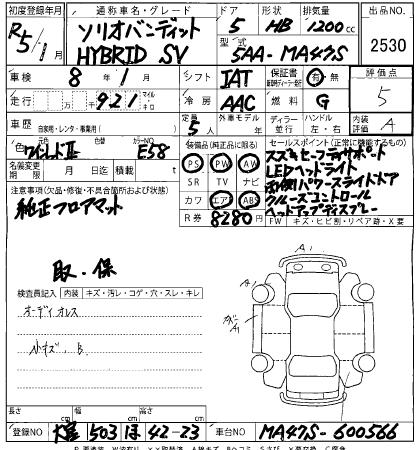 初度登録年月 通称車名・グレード ドア 形状 排気量 出品NO.
R5年/1月 ソリオバンディット HYBRID SV 5 HB 1200cc 2530
型式 5AA-MA47S
車検 8年1月 シフト IAT 保証書 有・無 燃料 G 評価点 5
走行 921 マイル キロ 冷房 AAC
車歴 自家用・レンタ・事業用( ) 定員 5人 外車モデル年 ディーラー 並行 ハンドル 左・右 内装 A
色 色替 カラーNO E58
名義変更期限 月 日迄 積載 t
装備品(純正品に限る)
PS PW AW
SR TV ナビ
カワ エアB ABS
R券 8280円
セールスポイント(正常に機能するもの)
スズキセーフティサポート
LEDヘッドライト
両側パワースライドドア
クルーズコントロール
ヘッドアップディスプレー
FW キズ・ヒビ割・リペア跡・X要
注意事項(欠品・修復・不具合箇所および状態)
純正フロアマット
取・保
検査員記入 内装 キズ・汚レ・コゲ・穴・スレ・キレ
オーディオレス
小キズ, B
A1
A1
長さ cm 幅 cm 高さ cm
登録NO 503 ほ 42-23 車台NO MA47S-600566